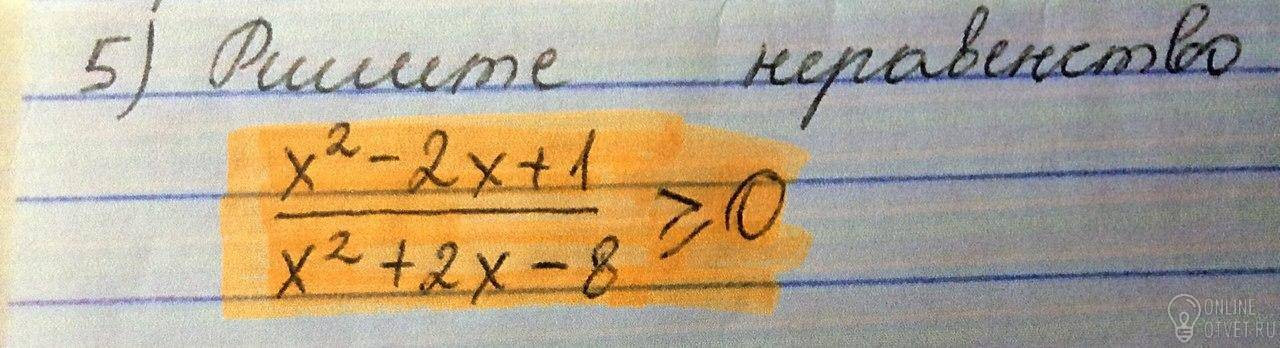 5) Решите неравенство
x² - 2x + 1
x² + 2x - 8
≥ 0
ONLINE
OTVET.RU